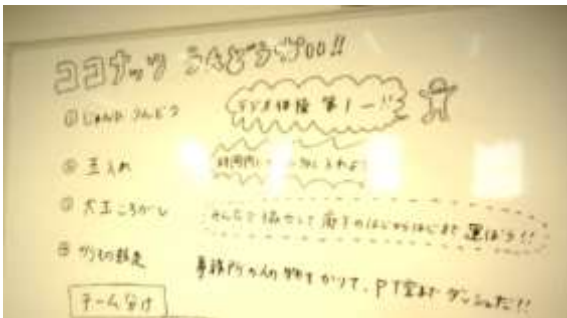 ココナッツ うんどうかい!!
① じゅんび うんどう
ラジオ体操 第1ー!!
② 玉入れ
時間内に
③ 大玉ころがし
みんなで協力して 廊下のはじからはじまで 運ぼう!!
④ かりもの競走
事務所の人の物をかりて、PT室までダッシュだ!!
チーム分け